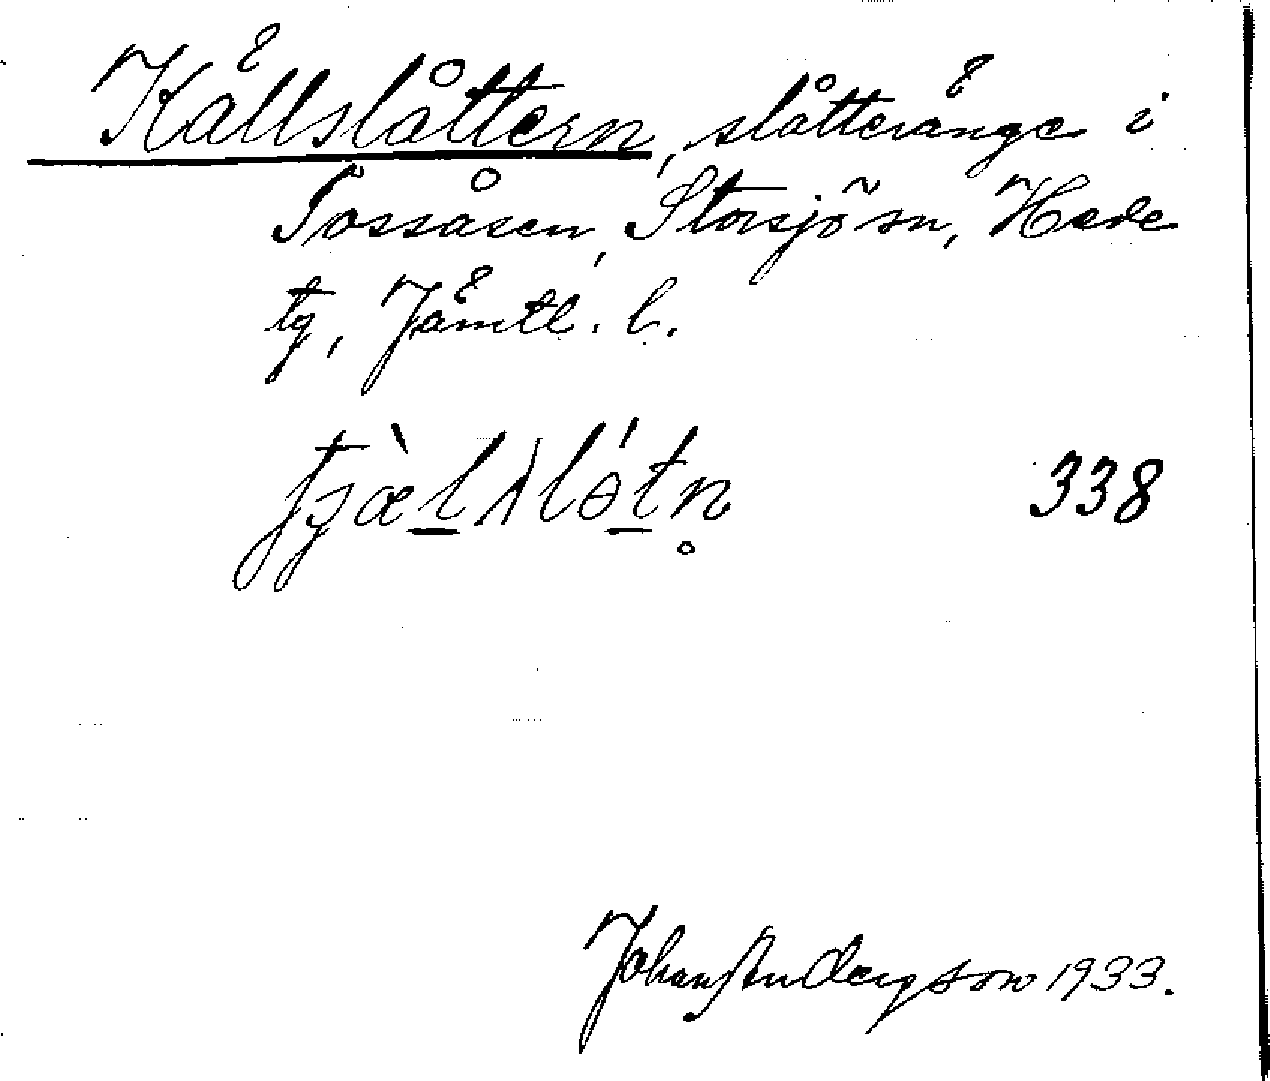 Källslåttern, slåtteränge i
Tossåsen, Storsjö sn, Hede
tg, Jämtl. l.
338
Johan Andersson 1933.